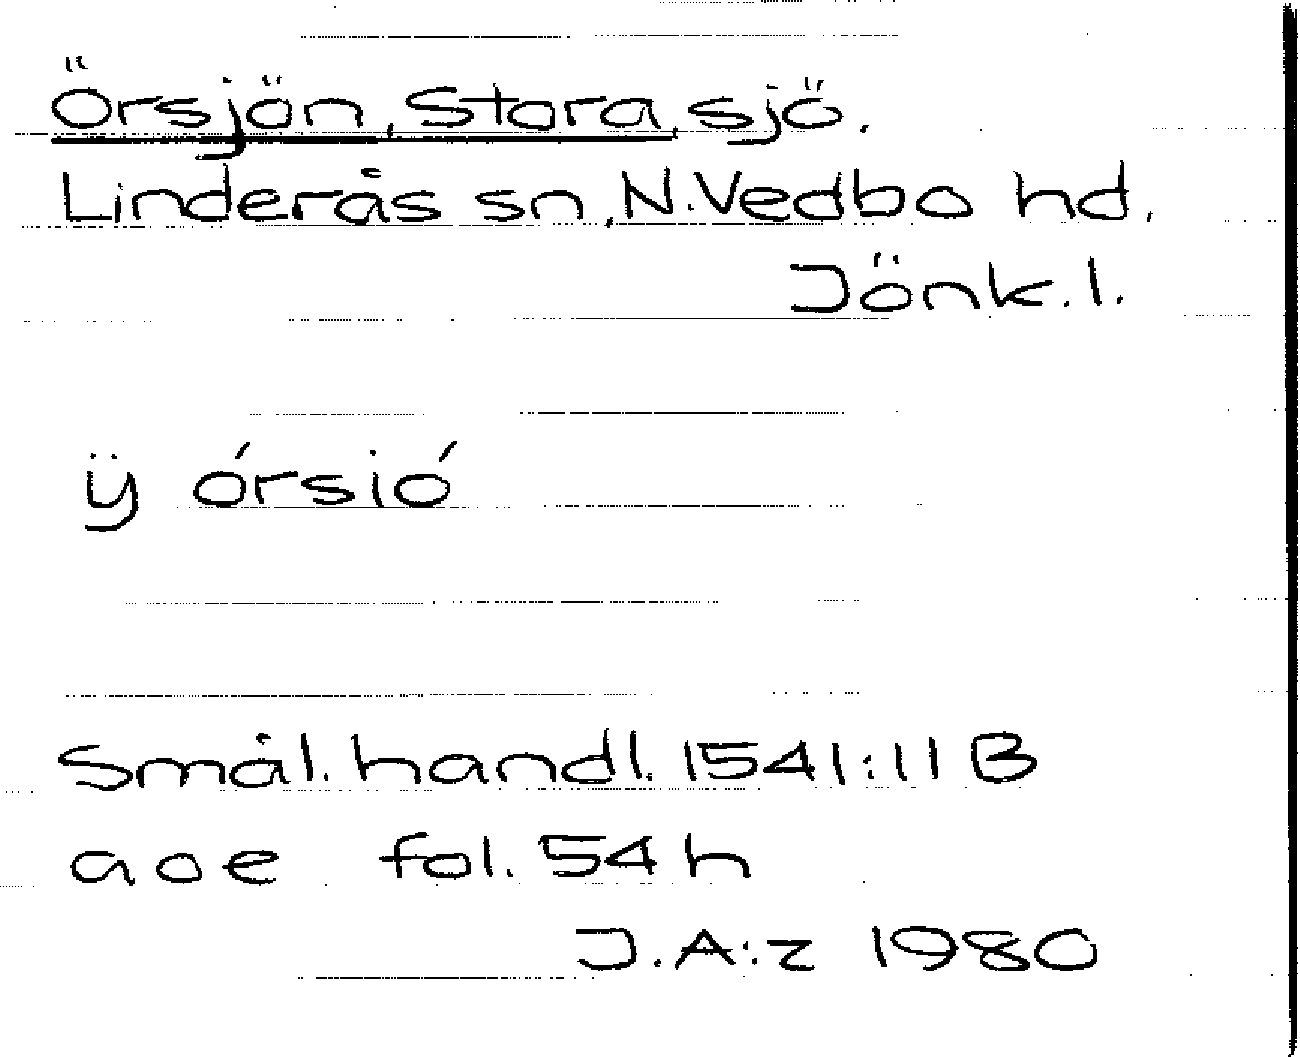 Örsjön, Stora, sjö.
Linderås sn, N.Vedbo hd,
Jönk.l.
ÿ órsió
Smål. handl. 1541:11 B
aoe fol. 54 h
J.A:z 1980